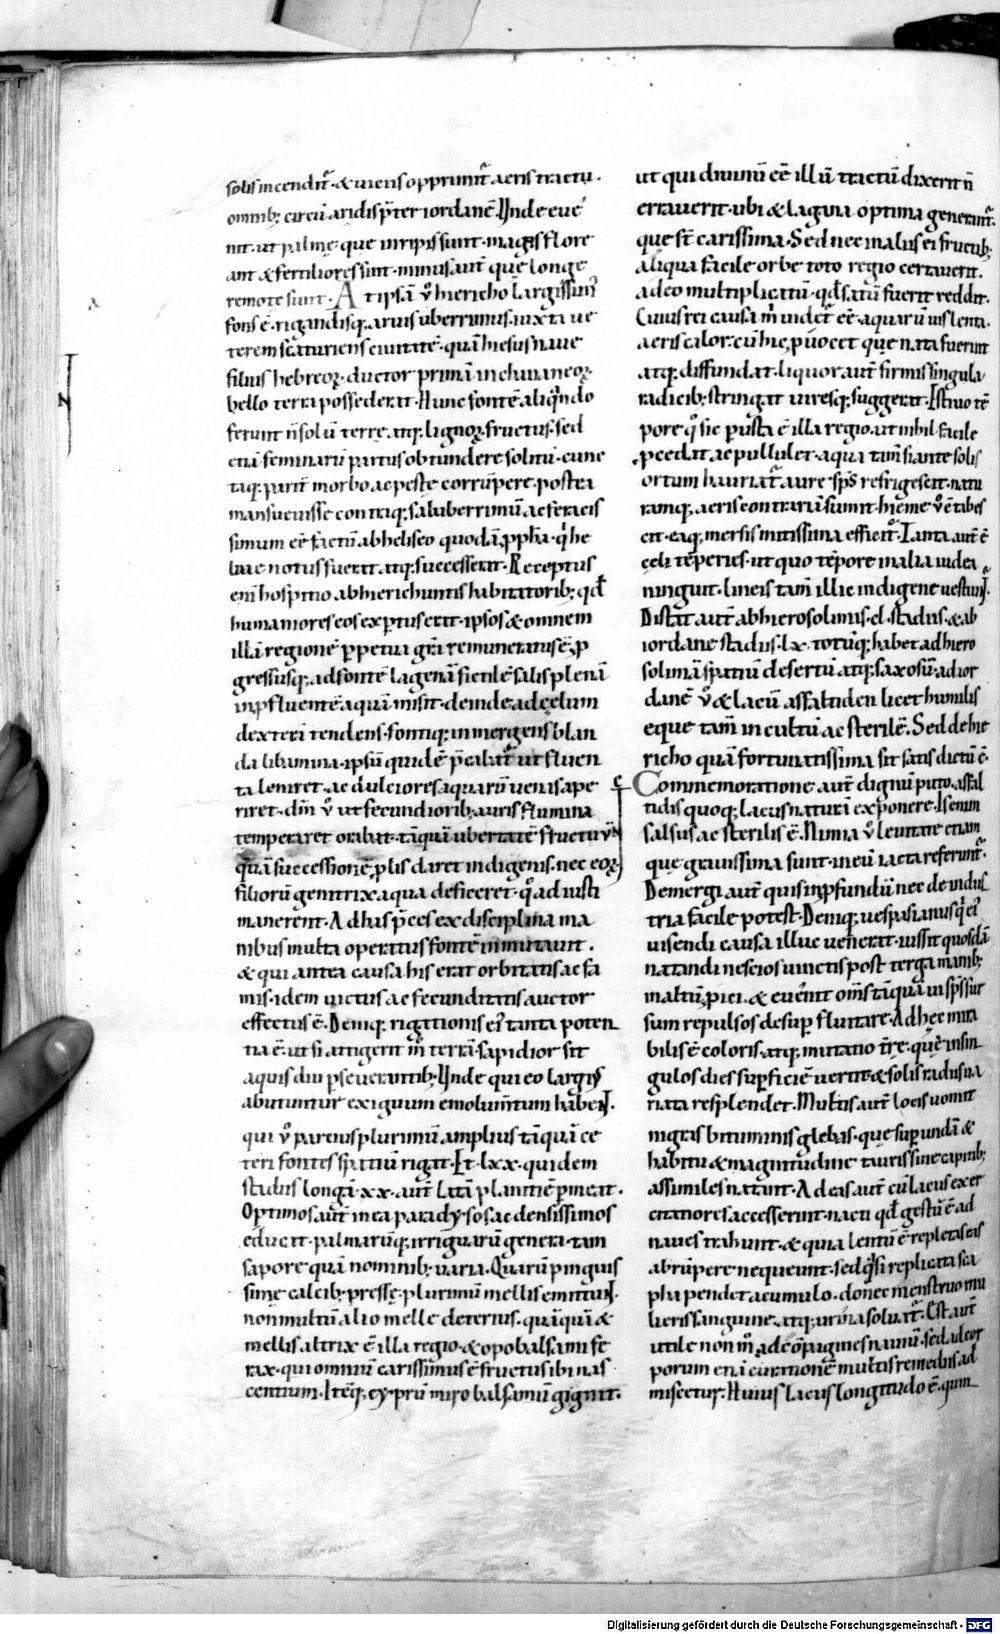 solis incendit̃ · & uiens opprimit̃ aeris tractu ·
omnib; circū aridis p̃ter iordanē. Unde eue
nit · ut palmę · que in ripis sunt · magis flore
ant & fertiliores sint · minus aut̃ que longe
remote sunt · At ipsā v̊ hiericho largissim'
fons ē · rigandisq; aruis uberrimus · iuxta ue
terem scaturiens ciuitatē · quā hiesus naue
filius hebreoꝝ · ductor primā in chananeoꝝ
bello terra possederat · Hunc fontē aliqn̄do
ferunt ñ solū terre, atq; lignoꝝ fructus · sed
etiā seminarū partus obtundere solitū · cunc
taq; parit̃ morbo ac peste corrūpere · postea
mansueuisse contraq; saluberrimū ac feracis
simum eē factū ab heliseo quodā ꝓph̃a · q' he
liae notus fuerat atq; successerat · Receptus
eni hospitio ab hierichuntis habitatorib; qd̄
humaniores eos exptus erat · ipsos & omnem
illā regionē p ppetua gr̃a remuneratus ē · ꝓ
gressusq; ad fontē lagenā fictilē salis plenā
in ꝓfluentē aquā misit · deinde ad cęlum
dexterā tendens · fontiq; inmergens blan
da libamina · ipsū quidē p̃cabat̃ ut fluen
ta leniret · ac dulciores aquarū uenis ape
riret · dm̄ v̊ ut fecundiorib; auris flumina
temperaret orabat · tāquā ubertatē fructuū
quā successionē ꝓlis daret indigenis · nec eoꝝ
filiorū genitrix aqua deficeret · qͦad iusti
manerent · Ad has p̃ces ex disciplina ma
nibus multa operatus fontē inmutauit ·
& qui antea causa his erat orbitatis ac fa
mis · idem uictus ac fecunditatis auctor
effectus ē · Deniq; rigationis ei' tanta poten
tia ē · ut si attigerit m̊ terrā · sapidior sit
aquis diu pseuerantib; Unde qui eo largis
abutuntur exiguum emolumtum habent.
qui v̊ parcius plurimū amplius tāquā ce
teri fontes spatiū rigat · Et · lxx · quidem
stadiis longā · xx · aut̃ latā planitiē pmeat ·
Optimos aut̃ in ea paradysos ac densissimos
educit · palmarūq; irriguarū genera · tam
sapore quā nominib; uaria · Quarū pinguis
sime calcib; pressę · plurimū mellis emittunt.
non multū alio melle deterius · quāquā &
mellis altrix ē illa regio · & opobalsami fe
rax · qui omniū carissimus ē fructus ibi nas
centium · Iteq; cyprū miro balsamū gignit.
ut qui diuinū eē illū tractū dixerit ñ
errauerit · ubi & lagana optima generant̃.
que st̄ carissima · Sed nec in aliis ei fructib;
aliqua facile orbe toto regio certauerit.
adeo multiplicatū · qd̄ satū fuerit reddit.
Cuius rei causa m̊ uidet̃ eē · aquarū uis lenta.
aeris calor · cū hic, ꝓuocet que nata fuerint
atq; diffundat · liquor aut̃ firmis singula
radicib; stringat uiresq; suggerat · Estiuo tē
pore qͦ sic pusta ē illa regio · ut nihil facile
ꝓcedat ac pullulet · aqua tam̃ si ante solis
ortum hauriat̃ aure sp̃s refrigescit · natu
ramq; aeris contrariū sumit · hieme v̊ ētabes
cit · eaq; mersis mitissima efficit̃ · Tanta aut̃ ē
cęli tēperies · ut quo tēpore in alia iudea
ninguit · lineis tam̃ illic indigene uestiunt̃.
Distat aut̃ ab hierosolimis · cl · stadiis · & ab
iordane stadiis · lx · totūq; habet ad hiero
solimā spatiū desertū atq; saxosū · ad ior
danē v̊ & lacū asfaltiden licet humilis
eque tam̃ incultū ac sterilē · Sed de hie
richo quā fortunatissima sit satis dictū ē ·
Commemoratione aut̃ dignū puto, asfal
tidis quoq; lacus naturā exponere · Is enim
salsus ac sterilis ē · Nimia v̊ leuitate etiam
que grauissima sunt · in eū iacta referunt̃ ·
Demergi aut̃ quis in ꝓfundū nec de indus
tria facile potest · Deniq; uespasianus q' ei'
uisendi causa illuc uenerat · iussit quosdā
natandi nescios uinctis post terga manib;
in altū ꝓici · & euenit oms tāquā ui sp̃s sur
sum repulsos desup fluitare · Ad hec mira
bilis ē coloris · atq; mutatio tr̄e · quę in sin
gulos dies supficiē uertit · & solis radiis ua
riata resplendet · Multis aut̃ locis uomit
nigras bituminis glebas · que sup undā &
habitu & magnitudine tauris sine capitib;
assimiles natant · Ad eas aut̃ cū lacus exer
citatiores accesserint · nacti qd̄ gestū ē ad
naues trahunt · & quia lentū ē repletas eis
abrūpere nequeunt · sed q̃si replicata sca
pha pendet acumulo · donec menstruo mu
lieris sanguine · atq; urina soluat̃ · Est aut̃
utile non m̊ ad cōpagines nauiū · sed ad cor
porum etiā curationē multis remediis ad
miscetur · Huius lacus longitudo ē · quin